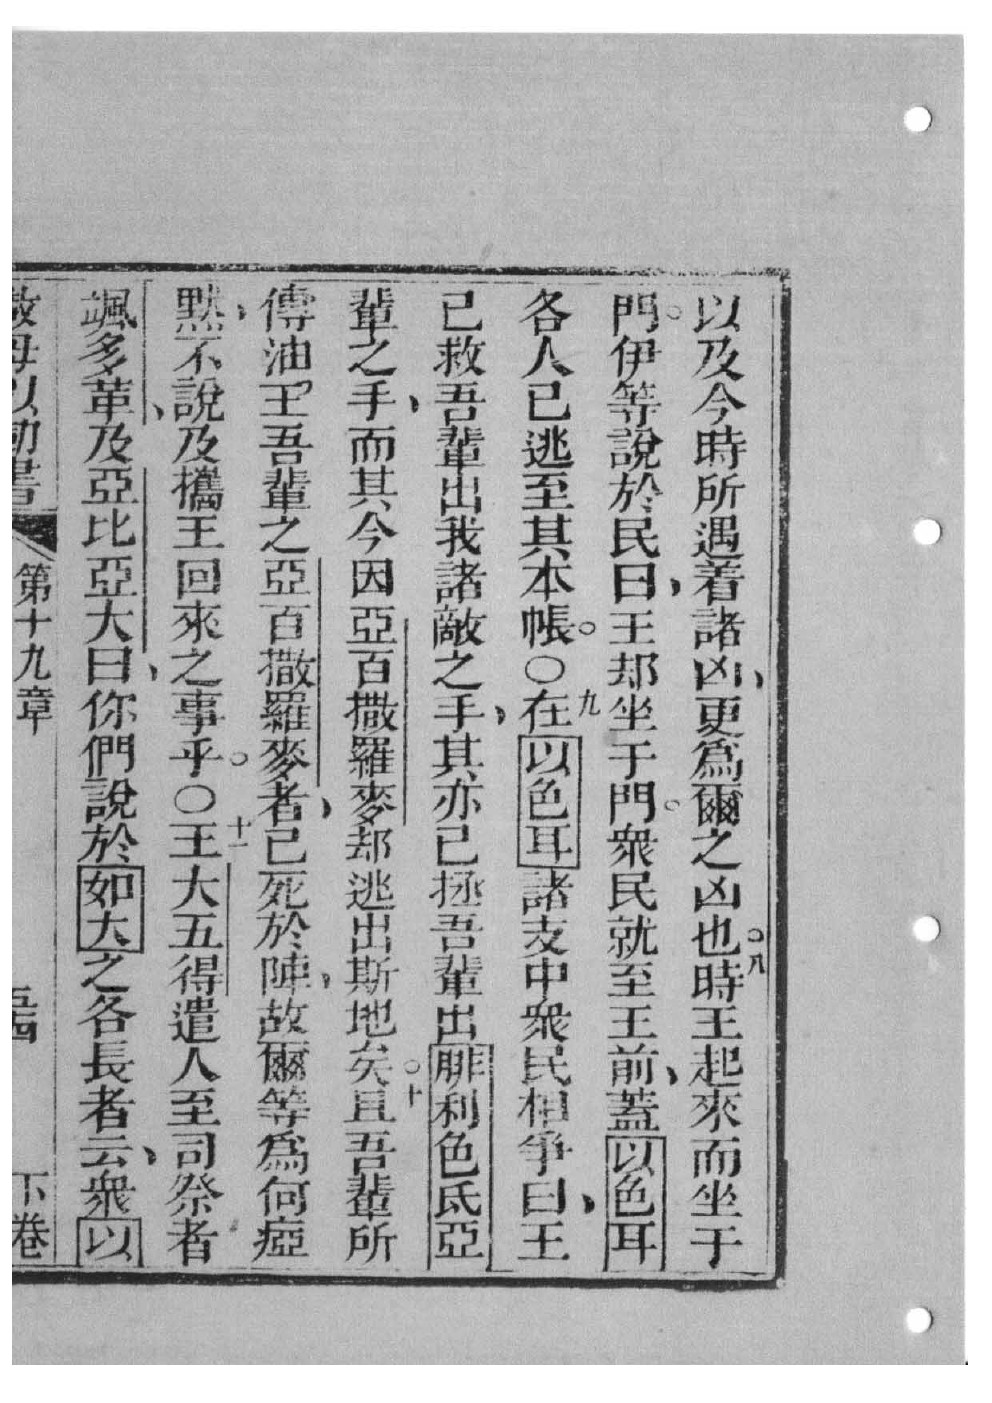 以及今時所遇着諸凶、更爲爾之凶也。八時王起來而坐于
門。伊等說於民曰、王却坐于門。衆民就至王前、蓋以色耳
各人已逃至其本帳。○九在以色耳諸支中衆民相爭曰、王
已救吾輩出我諸敵之手、其亦已拯吾輩出腓利色氐亞
輩之手、而其今因亞百撒羅麥却逃出斯地矣。十且吾輩所
傳油王吾輩之亞百撒羅麥者、已死於陣、故爾等爲何瘂
默、不說及攜王回來之事乎。○十一王大五得遣人至司祭者
颯多革、及亞比亞大曰、你們說於如大之各長者云、衆以
書 第十九章 下卷